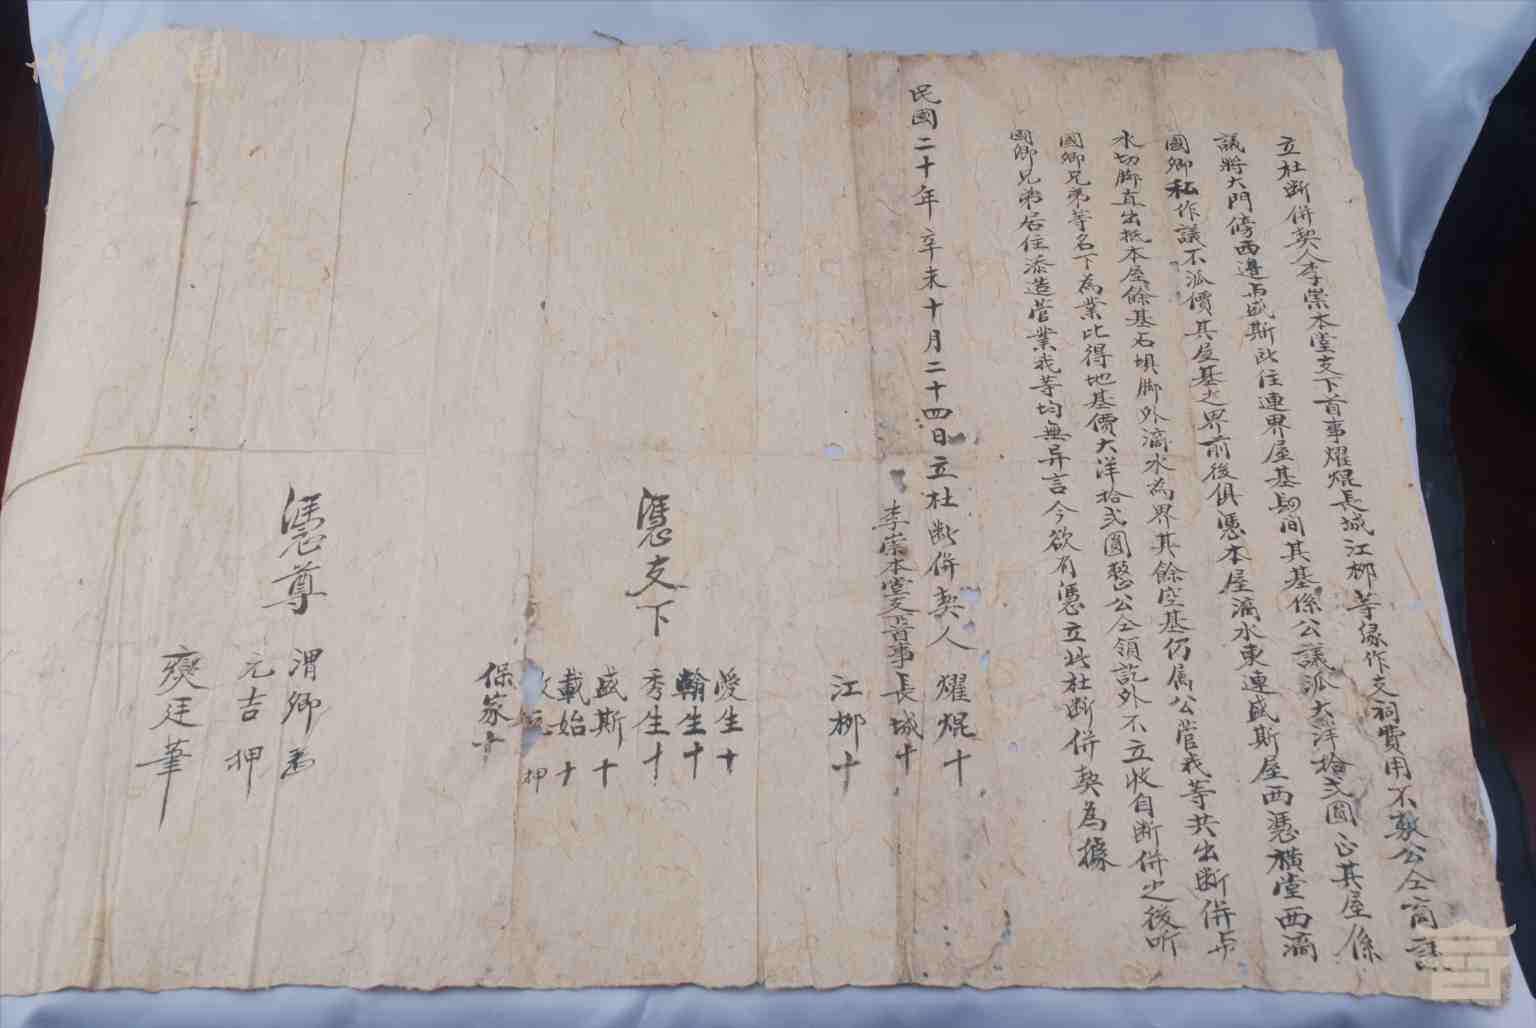 立杜断併契人李崇本堂支下首事燿焜長城江柳等緣作支祠費用不敷公仝商議
議將大門傍西邊与盛斯所住連界屋基壹間其基係公議派大洋拾弍圓正其屋係
國卿私作議不派價其屋基之界前後俱憑本屋滴水東連盛斯屋西憑横堂西滴
水切脚直出抵本屋餘基石填脚外滴水為界其餘空基仍属公管我等共出断併与
國卿兄弟等名下為業比得地基價大洋拾弍圓整公仝領訖外不立收自断併之後听
國卿兄弟居住添造管業我等均無异言今欲有憑立此杜断併契為據
民國二十年辛未十月二十四日立杜断併契人 燿焜十
李崇本堂支下首事 長城十
江柳十
憑支下
愛生十
翰生十
秀生十
盛斯十
載始十
押
保家十
憑尊
渭卿
元吉押
奭廷筆